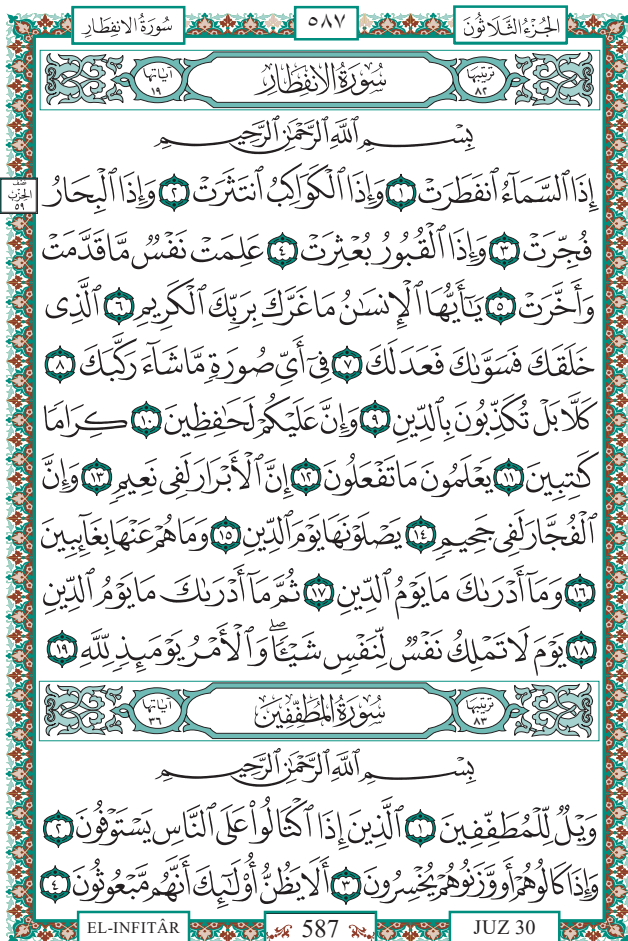 سُورَةُ الانفِطَارِ ٥٨٧ الجُزْءُ الثَّلَاثُونَ
تَرْتِيبُهَا ٨٢ سُورَةُ الانفِطَارِ آيَاتُهَا ١٩
بِسْمِ ٱللَّهِ ٱلرَّحْمَٰنِ ٱلرَّحِيمِ
إِذَا ٱلسَّمَآءُ ٱنفَطَرَتْ ١ وَإِذَا ٱلْكَوَاكِبُ ٱنتَثَرَتْ ٢ وَإِذَا ٱلْبِحَارُ
نصف الحزب ٥٩
فُجِّرَتْ ٣ وَإِذَا ٱلْقُبُورُ بُعْثِرَتْ ٤ عَلِمَتْ نَفْسٌ مَّا قَدَّمَتْ
وَأَخَّرَتْ ٥ يَٰٓأَيُّهَا ٱلْإِنسَٰنُ مَا غَرَّكَ بِرَبِّكَ ٱلْكَرِيمِ ٦ ٱلَّذِى
خَلَقَكَ فَسَوَّىٰكَ فَعَدَلَكَ ٧ فِىٓ أَىِّ صُورَةٍ مَّا شَآءَ رَكَّبَكَ ٨
كَلَّا بَلْ تُكَذِّبُونَ بِٱلدِّينِ ٩ وَإِنَّ عَلَيْكُمْ لَحَٰفِظِينَ ١٠ كِرَامًا
كَٰتِبِينَ ١١ يَعْلَمُونَ مَا تَفْعَلُونَ ١٢ إِنَّ ٱلْأَبْرَارَ لَفِى نَعِيمٍ ١٣ وَإِنَّ
ٱلْفُجَّارَ لَفِى جَحِيمٍ ١٤ يَصْلَوْنَهَا يَوْمَ ٱلدِّينِ ١٥ وَمَا هُمْ عَنْهَا بِغَآئِبِينَ
١٦ وَمَآ أَدْرَىٰكَ مَا يَوْمُ ٱلدِّينِ ١٧ ثُمَّ مَآ أَدْرَىٰكَ مَا يَوْمُ ٱلدِّينِ
١٨ يَوْمَ لَا تَمْلِكُ نَفْسٌ لِّنَفْسٍ شَيْـًٔا ۖ وَٱلْأَمْرُ يَوْمَئِذٍ لِّلَّهِ ١٩
تَرْتِيبُهَا ٨٣ سُورَةُ المُطَفِّفِينَ آيَاتُهَا ٣٦
بِسْمِ ٱللَّهِ ٱلرَّحْمَٰنِ ٱلرَّحِيمِ
وَيْلٌ لِّلْمُطَفِّفِينَ ١ ٱلَّذِينَ إِذَا ٱكْتَالُوا۟ عَلَى ٱلنَّاسِ يَسْتَوْفُونَ ٢
وَإِذَا كَالُوهُمْ أَو وَّزَنُوهُمْ يُخْسِرُونَ ٣ أَلَا يَظُنُّ أُو۟لَٰٓئِكَ أَنَّهُم مَّبْعُوثُونَ ٤
EL-INFITÂR 587 JUZ 30